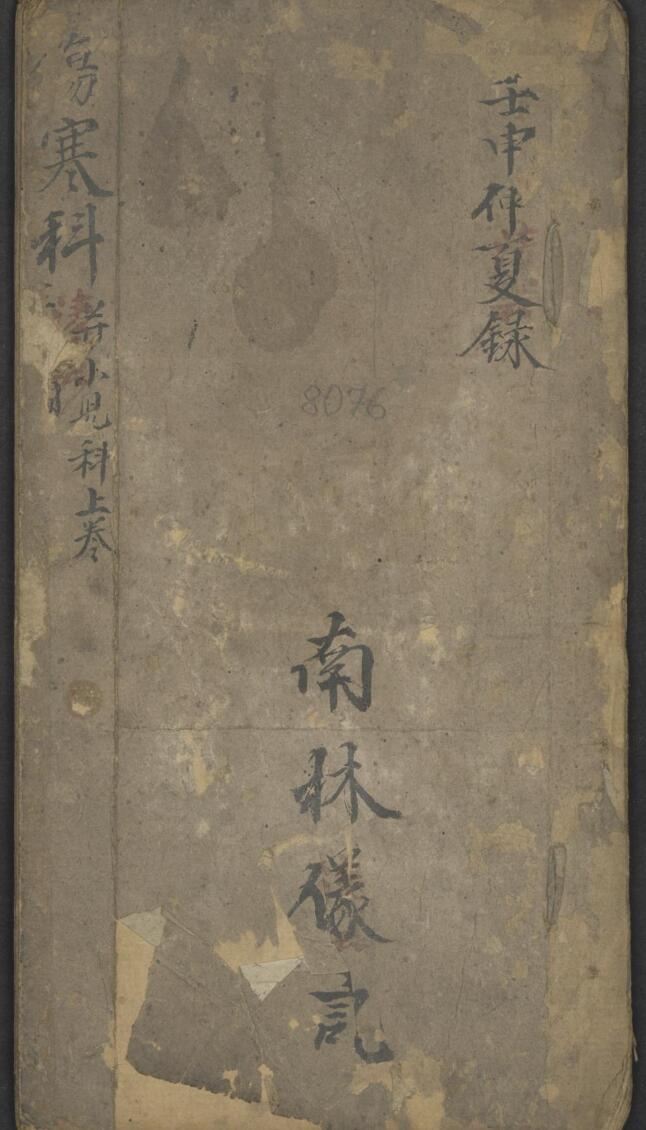 壬申仲夏録
8076
南林儀記
傷寒科
并小児科上巻